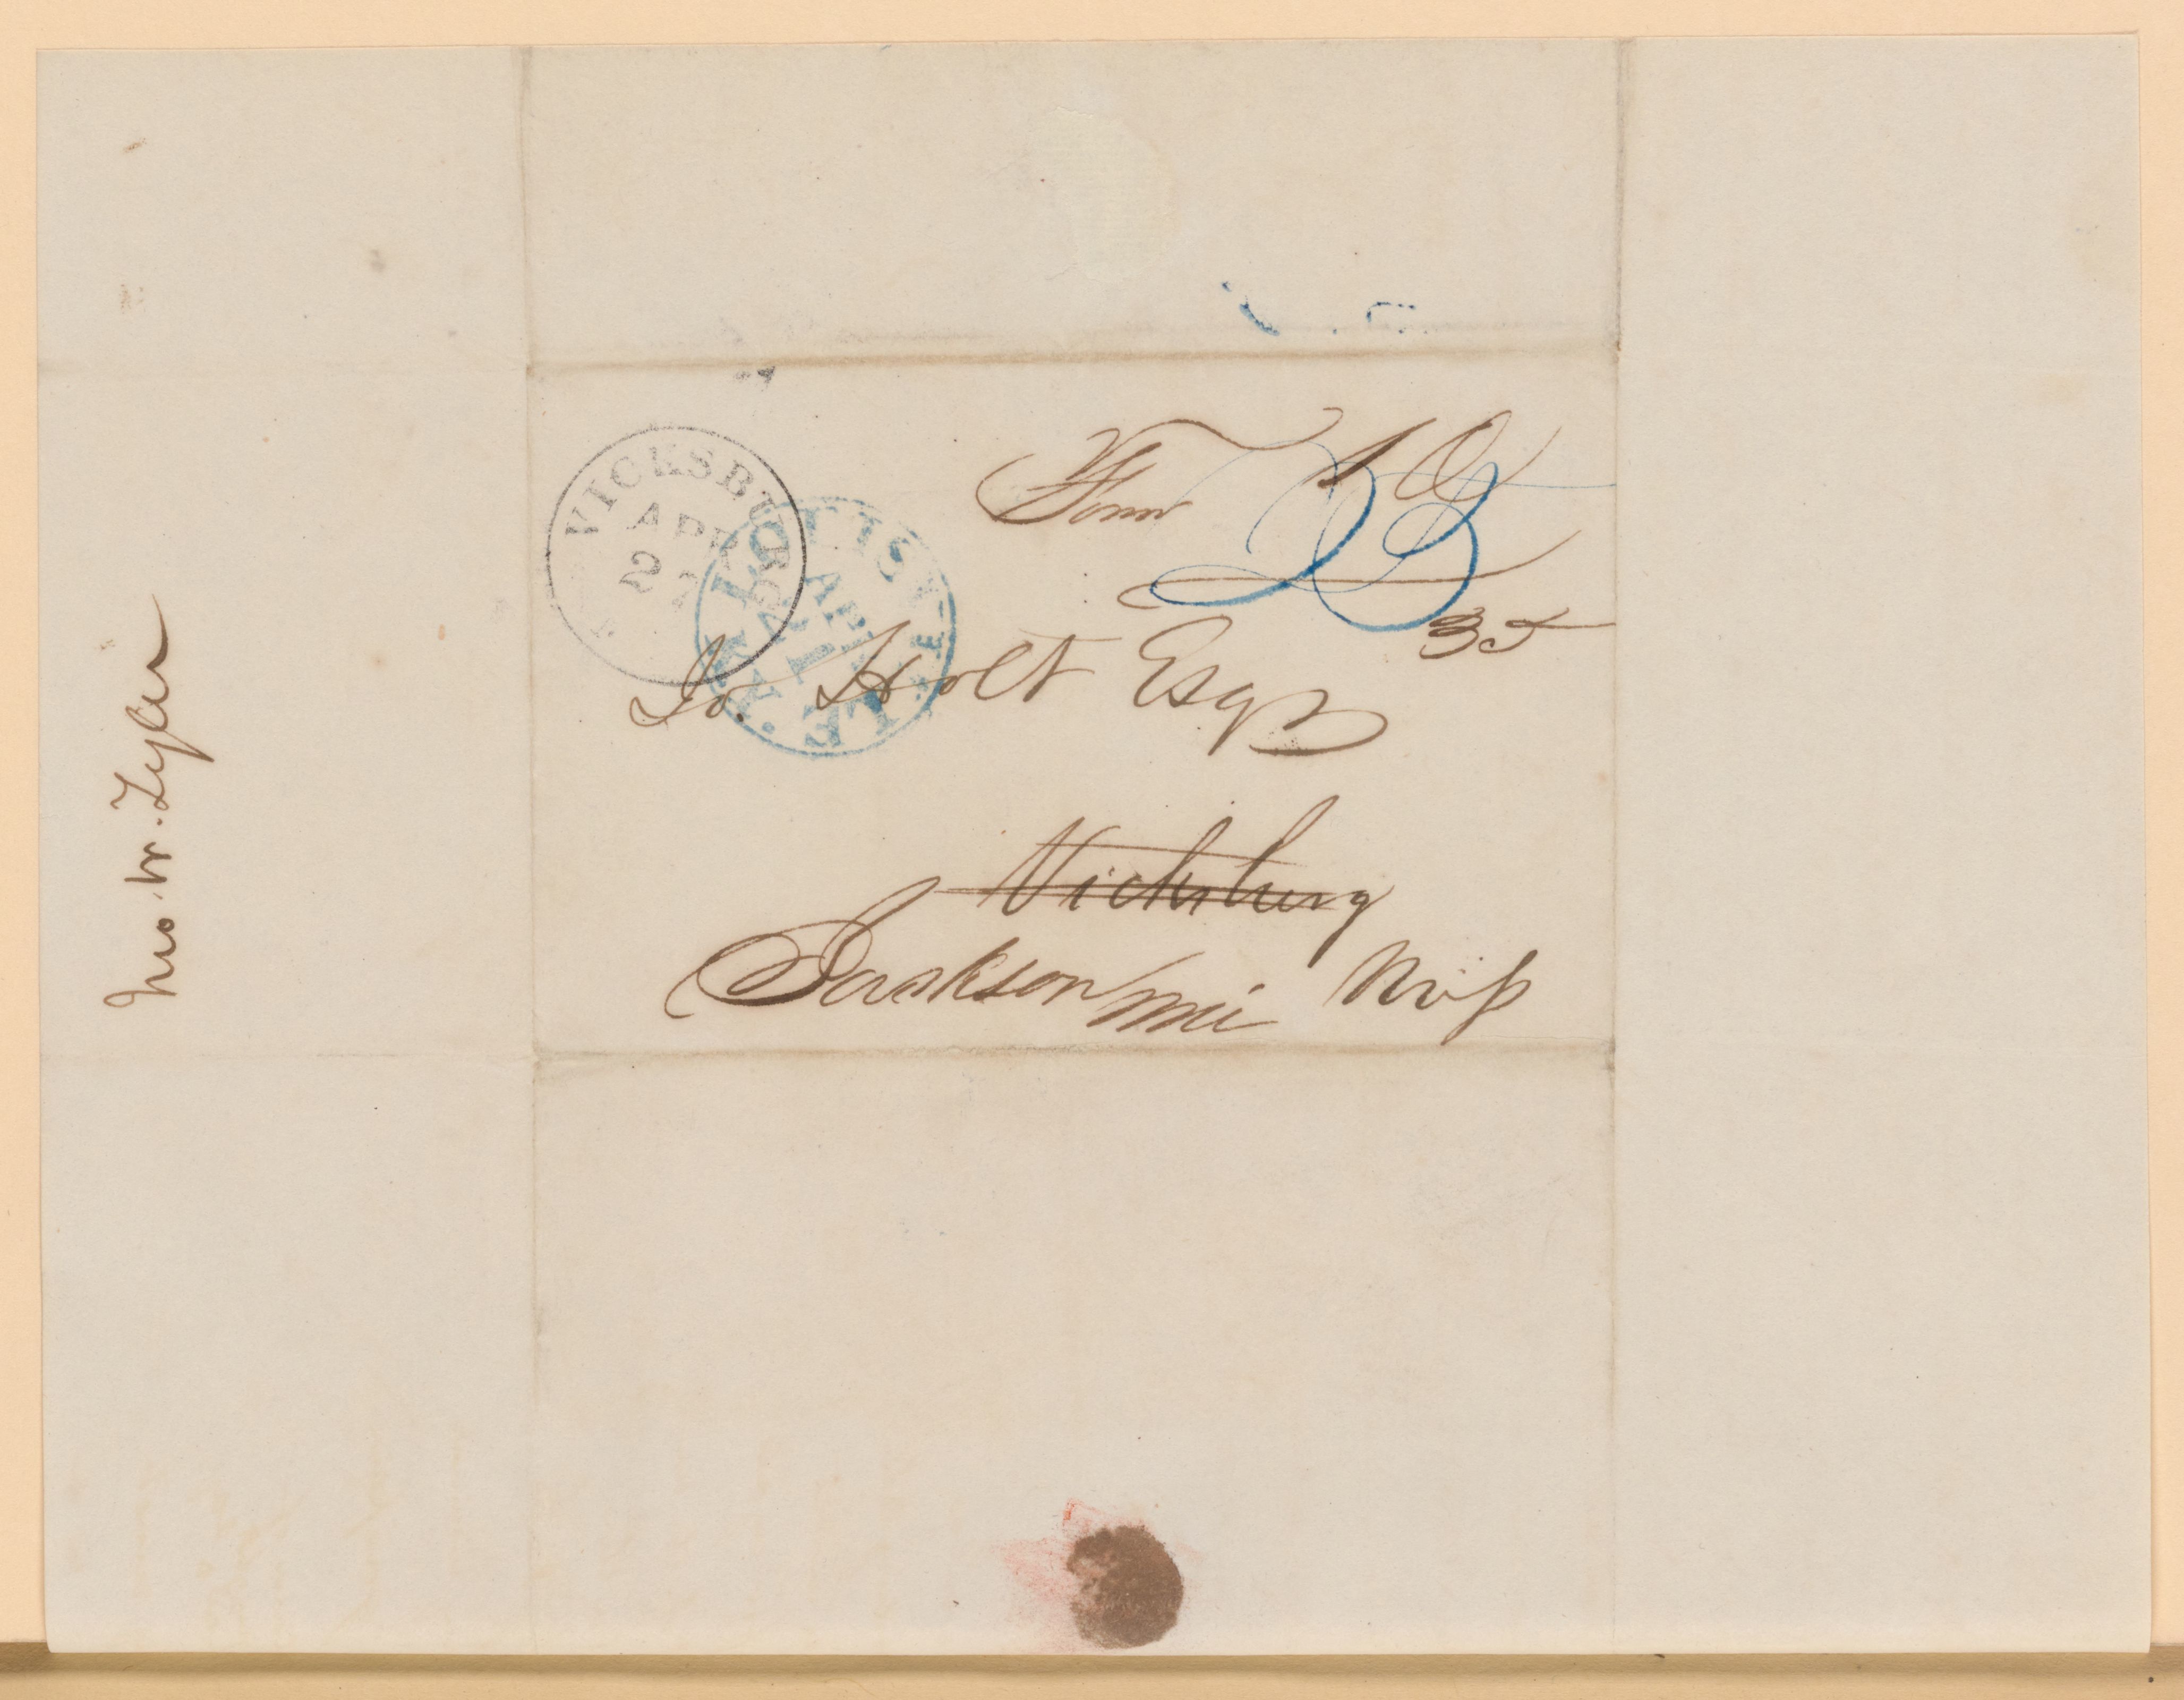 Jno. W. Tyler
VICKSBURG
APR
27
LOUISVILLE KY.
APR
Forw 10
25
35
Jo. Holt Esqr
Vicksburg
Jackson Mi Miſs